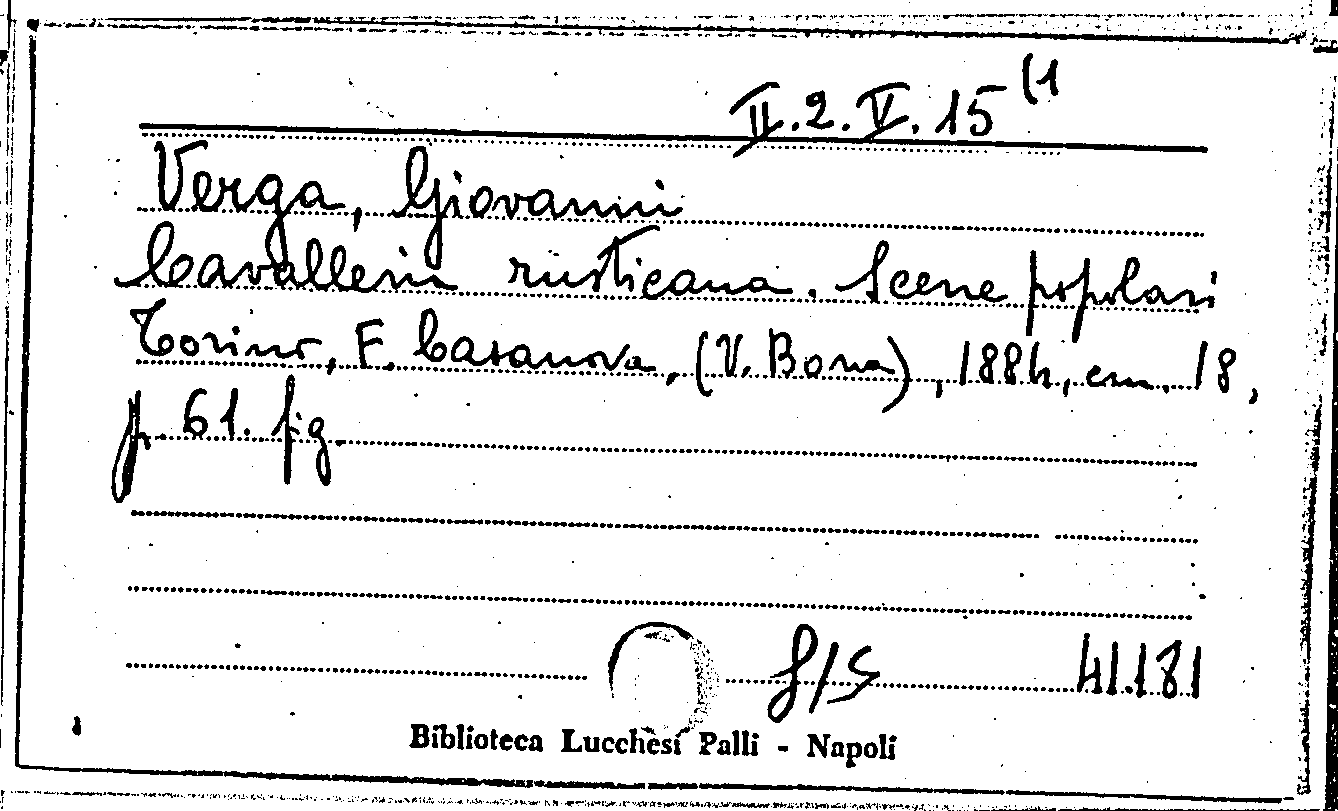 II.2.V.15 (1
Verga, Giovanni
Cavalleria rusticana. Scene popolari
Torino, F. Casanova, (V. Bona), 1884, cm. 18,
p. 61. fig.
41.181
Biblioteca Lucchesi Palli - Napoli